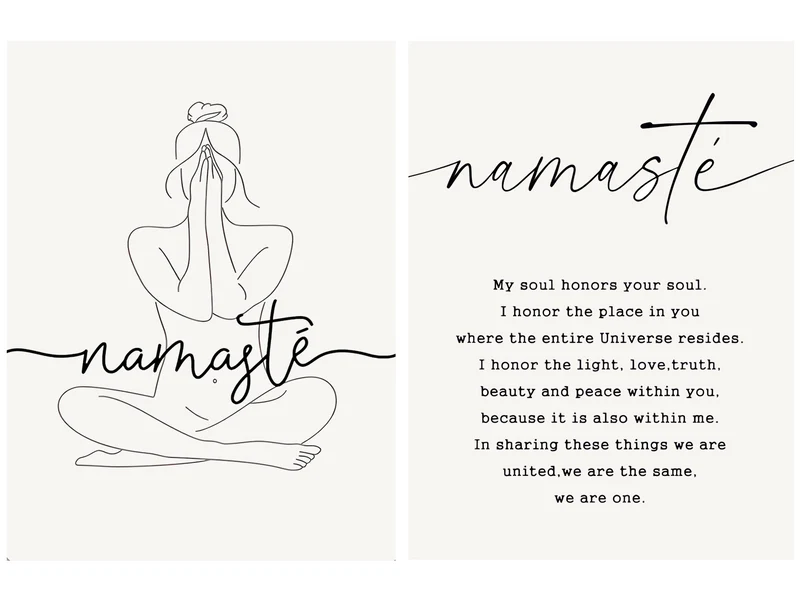 namasté
namasté
My soul honors your soul.
I honor the place in you
where the entire Universe resides.
I honor the light, love,truth,
beauty and peace within you,
because it is also within me.
In sharing these things we are
united,we are the same,
we are one.